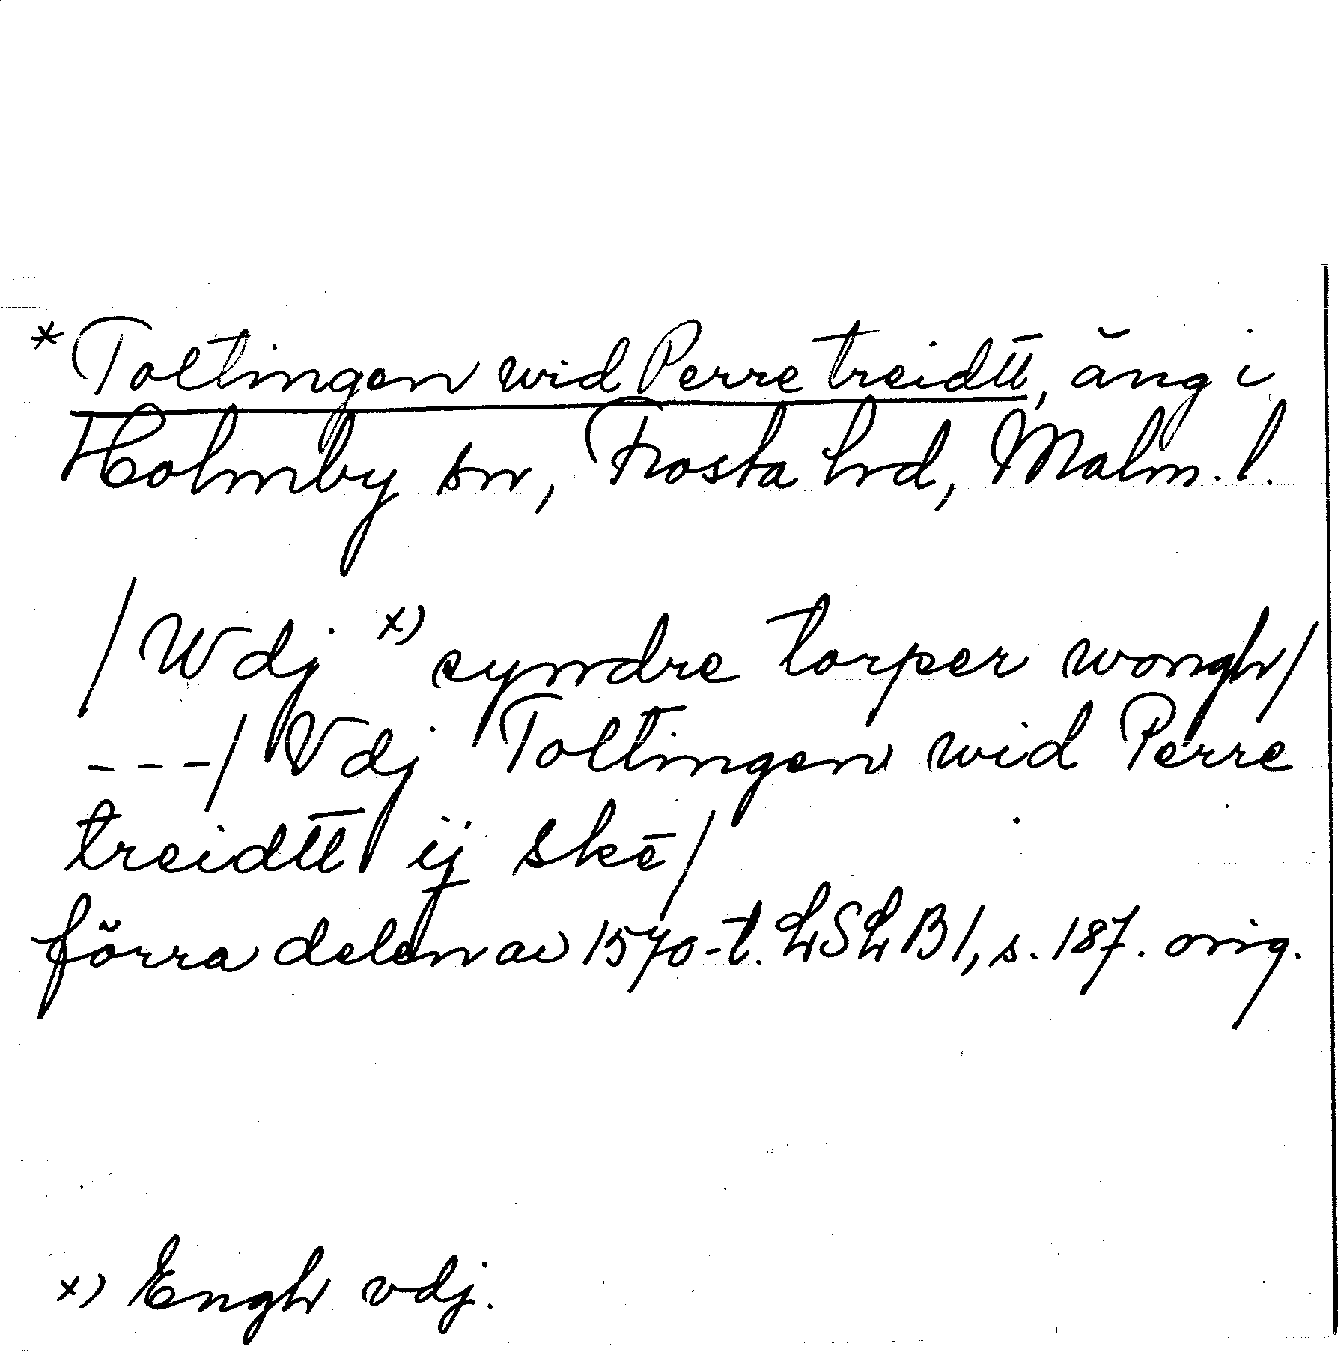 * Toltingen wid Perre treidtt, äng i
Holmby sn, Frosta hrd, Malm. l.
/Wdj x) syndre torper wongh/
---/ Vdj Toltingen wid Perre
treidtt ij skē/
förra delen av 1570-t. LSLB1, s. 187. orig.
x) Engh vdj.